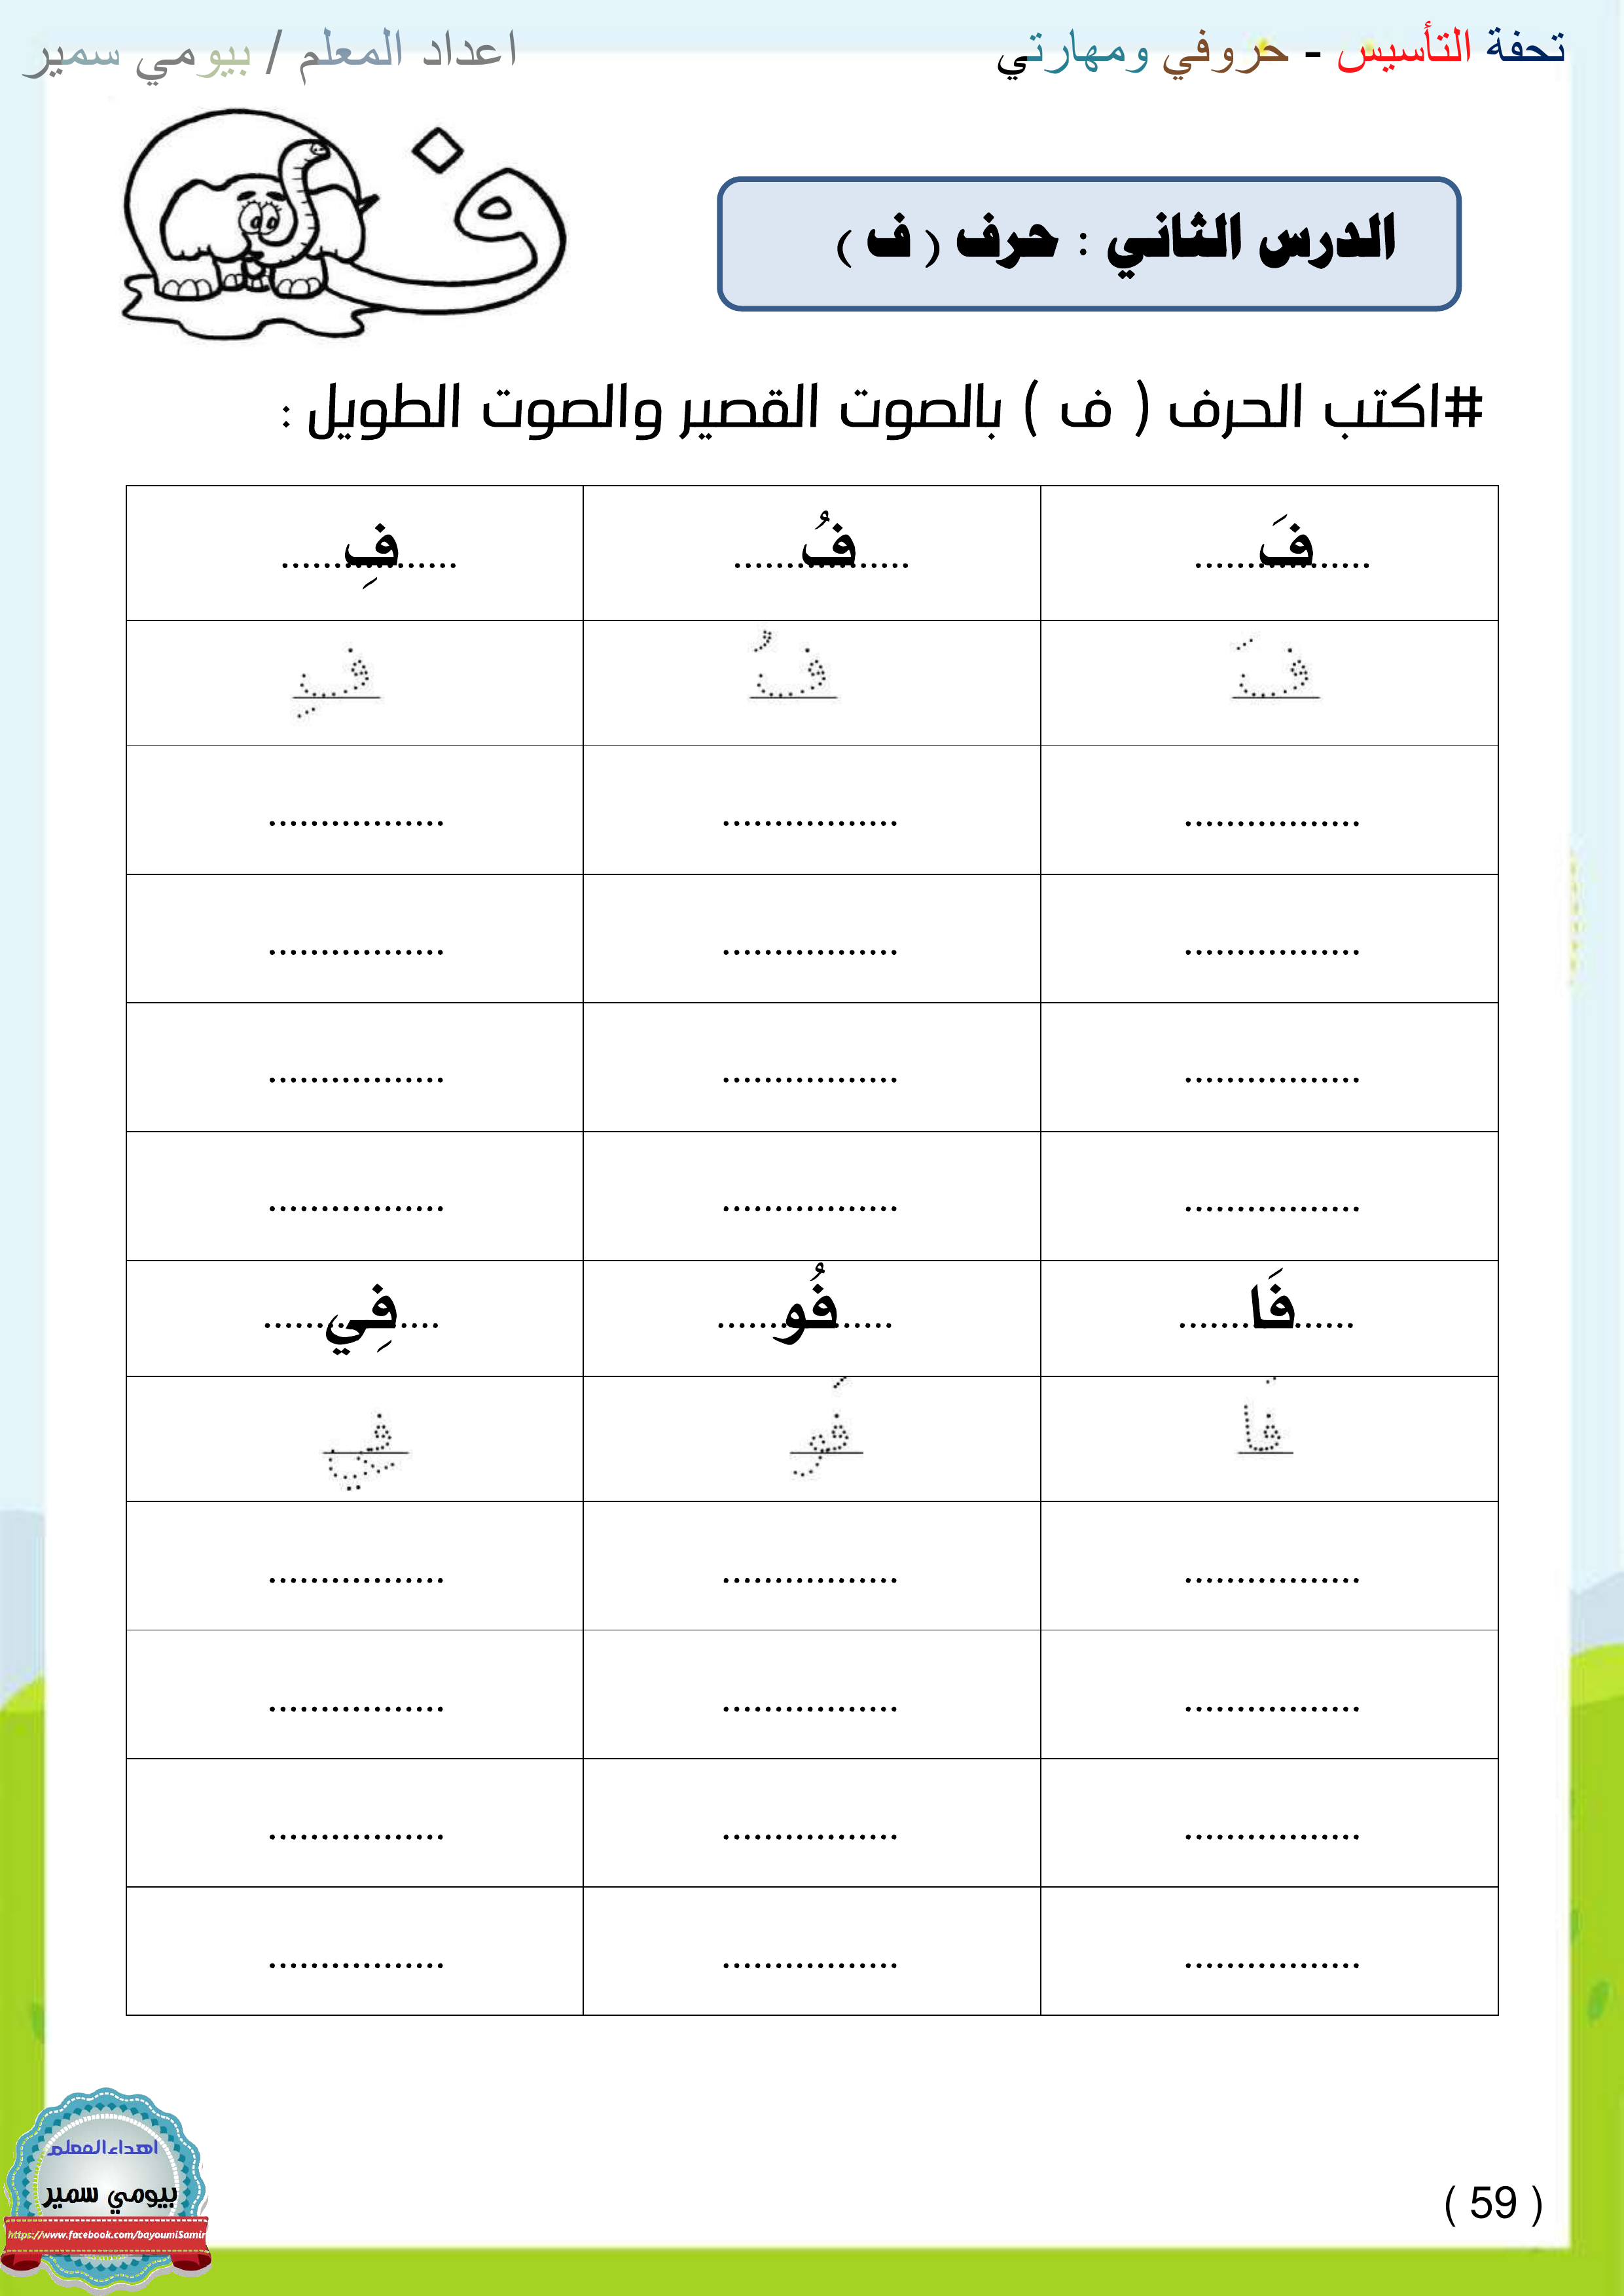 تحفة التأسيس - حروفي ومهارتي
اعداد المعلم / بيومي سمير
ف
الدرس الثاني : حرف ( ف )
#اكتب الحرف ( ف ) بالصوت القصير والصوت الطويل :
فَ فُ فِ
فَ فُ فِ
................. ................. .................
................. ................. .................
................. ................. .................
................. ................. .................
فَا فُو فِي
فَا فُو في
................. ................. .................
................. ................. .................
................. ................. .................
................. ................. .................
اهداء المعلم
بيومي سمير
https://www.facebook.com/bayoumiSamir
( 59 )